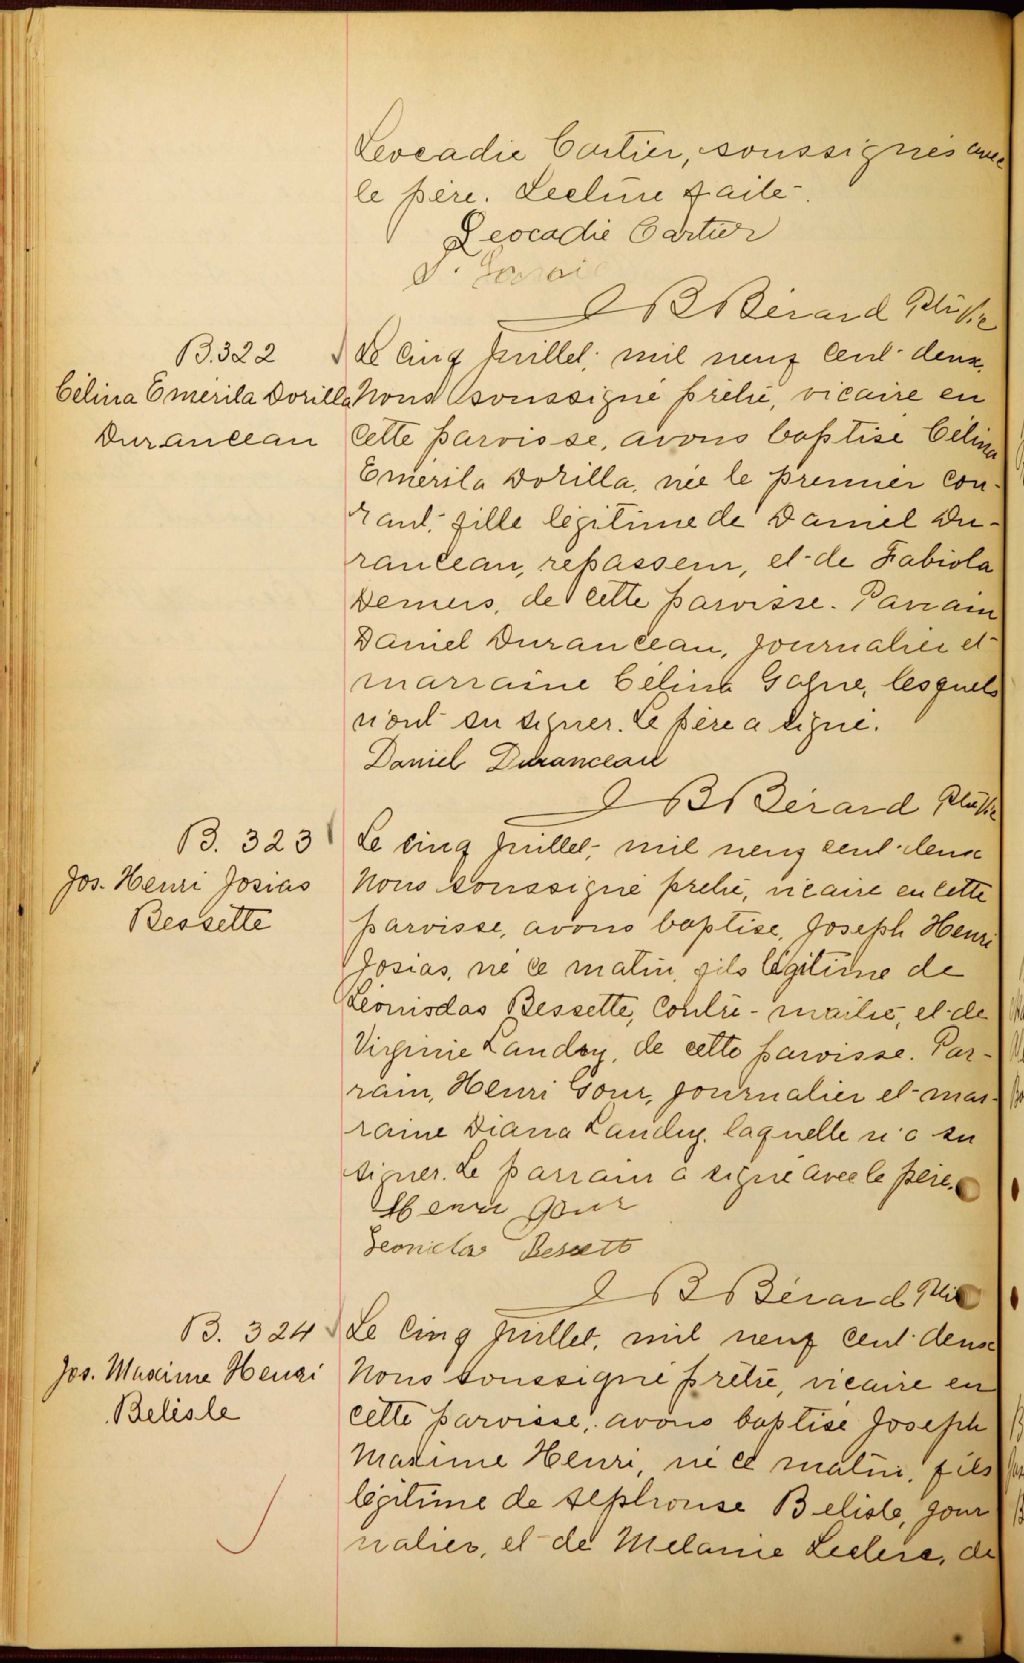 Leocadie Cartier, soussignés avec
le père. Lecture faite.
Leocadie Cartier
J B Bérard Ptre Vic
B. 322
Célina Emérila Dorilla
Duranceau
Le cinq juillet, mil neuf cent deux,
Nous soussigné prêtre, vicaire en
cette paroisse, avons baptisé Célina
Emérila Dorilla, née le premier cou-
rant, fille légitime de Daniel Du-
ranceau, repasseur, et de Fabiola
Demers, de cette paroisse. Parrain
Daniel Duranceau, journalier et
marraine Célina Gagne, lesquels
n'ont su signer. Le père a signé.
Daniel Duranceau
J B Bérard Ptre Vic
B. 323
Jos. Henri Josias
Bessette
Le cinq juillet, mil neuf cent deux
Nous soussigné prêtre, vicaire en cette
paroisse, avons baptisé, Joseph Henri
Josias, né ce matin, fils légitime de
Léonidas Bessette, contre-maitre, et de
Virginie Landry, de cette paroisse. Par-
rain, Henri Gour, journalier et mar-
raine Diana Landry, laquelle n'a su
signer. Le parrain a signé avec le père.
Henri Gour
Leonidas Bessette
J B Bérard Ptre
B. 324
Jos. Maxime Henri
Belisle
Le cinq juillet, mil neuf cent deux
Nous soussigné prêtre, vicaire en
cette paroisse, avons baptisé Joseph
Maxime Henri, né ce matin, fils
légitime de Alphonse Belisle, jour
nalier, et de Melanie Leclerc, de